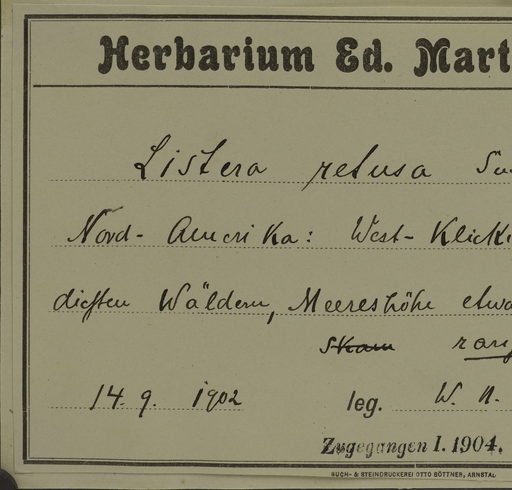 Herbarium Ed. Mart
Listera retusa Su
Nord-Amerika: West-Klicki
dichten Wäldern, Meereshöhe etwa
Skam rang
14. 9. 1902 leg. W. N.
Zugegangen I. 1904.
BUCH- & STEINDRUCKEREI OTTO BÖTTNER, ARNSTAL